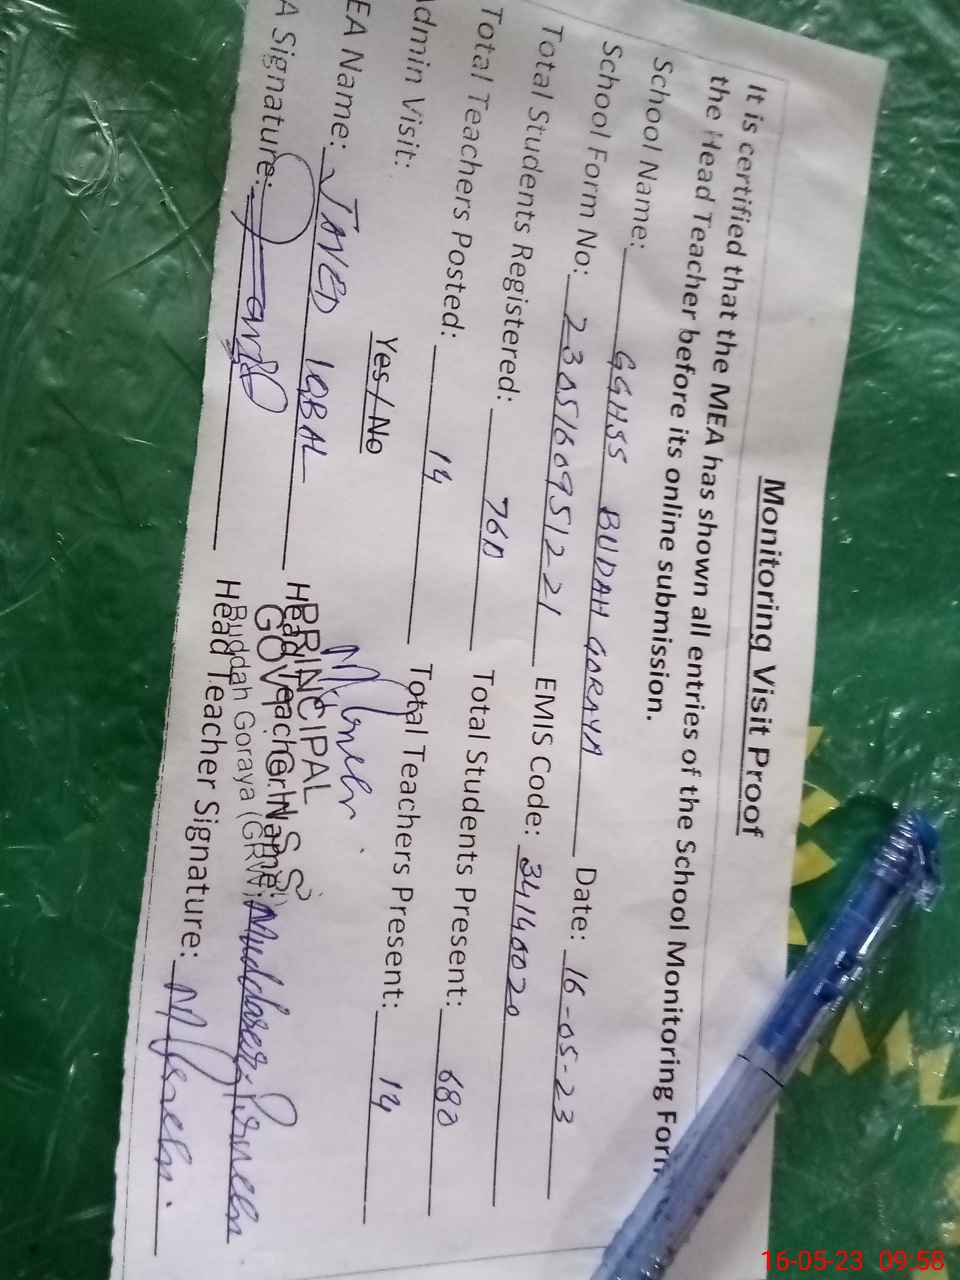 Monitoring Visit Proof
It is certified that the MEA has shown all entries of the School Monitoring Form
the Head Teacher before its online submission.
School Name: GGHSS BUDAH GORAYA Date: 16-05-23
School Form No: 23051609512-21 EMIS Code: 34140020
Total Students Registered: 760 Total Students Present: 680
Total Teachers Posted: 14 Total Teachers Present: 14
Admin Visit: Yes / No
EA Name: JAVED IQBAL Head Teacher Name: Muddaser Perveen
A Signature: Head Teacher Signature:
PRINCIPAL
GOVT
Buddah Goraya (GRW)
16-05-23 09.58